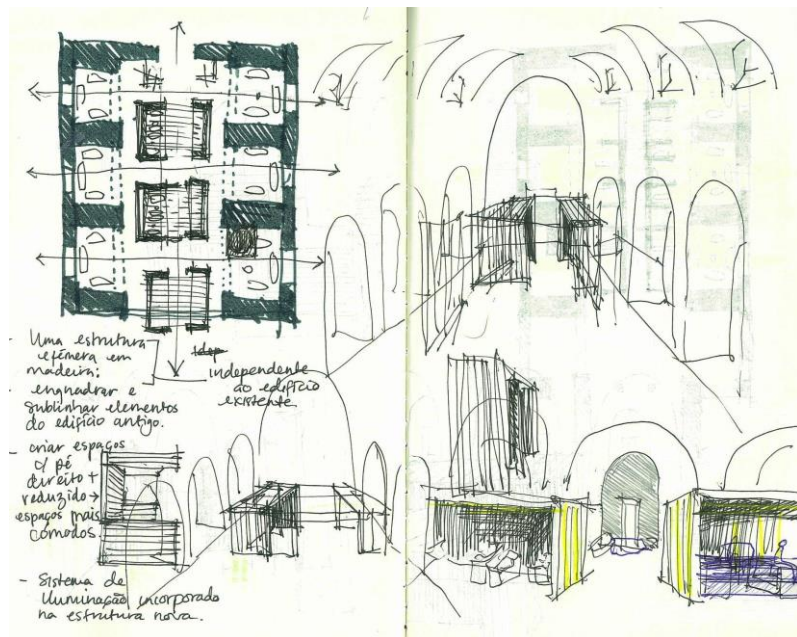 Uma estrutura
efémera em
madeira:
enquadrar e
sublinhar elementos
do edifício antigo.
independente
ao edifício
existente.
- criar espaços
c/ pé
direito +
reduzido →
espaços mais
cómodos.
- Sistema de
iluminação incorporado
na estrutura nova.